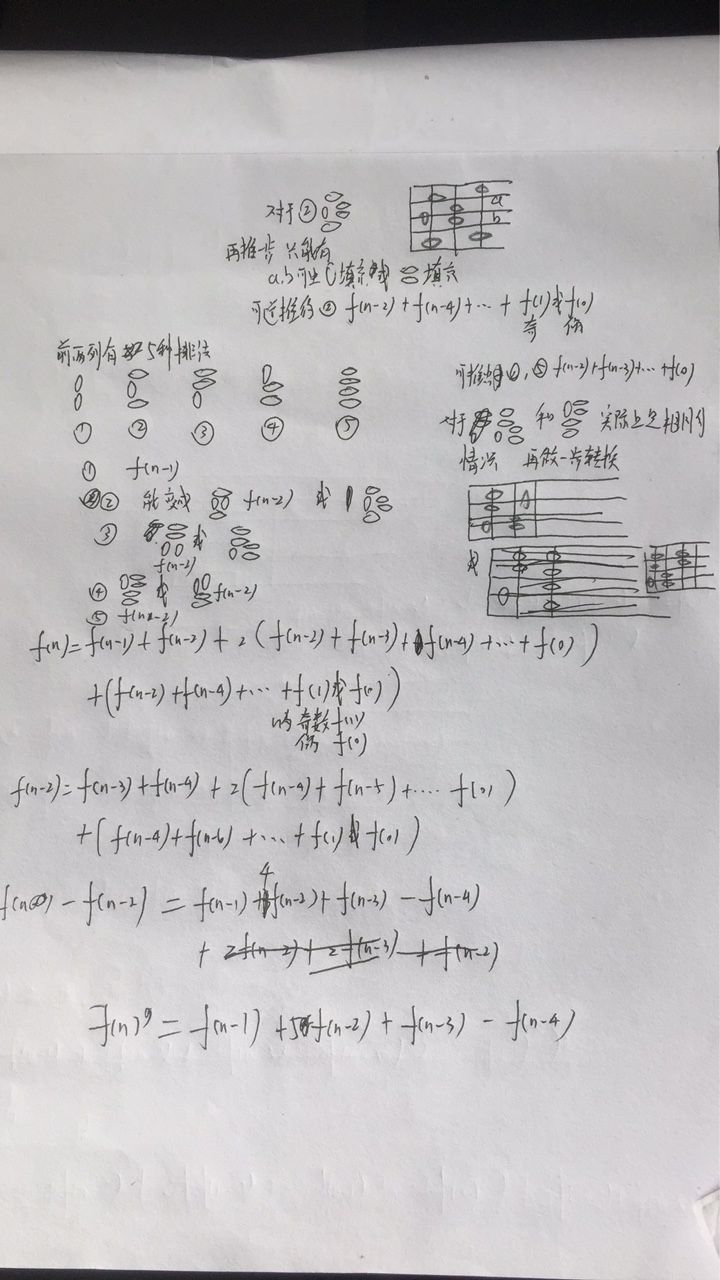 对于②
a
b
再推一步 只能有
a,b可由 填充或 填充
可逆推得② f(n-2)+f(n-4)+…+f(1)或f(0)
奇 偶
前两列有5种排法
① ② ③ ④ ⑤
可推知④,⑤ f(n-2)+f(n-3)+…+f(0)
对于 和 实际上是相同的
情况 再做一步转换
① f(n-1)
② 能变成 f(n-2) 或
③ 或
f(n-2)
④ 或 f(n-2)
⑤ f(n-2)
A
或
f(n)=f(n-1)+f(n-2)+2(f(n-2)+f(n-3)+f(n-4)+…+f(0))
+(f(n-2)+f(n-4)+…+f(1)或f(0))
奇数f(1)
偶 f(0)
f(n-2)=f(n-3)+f(n-4)+2(f(n-4)+f(n-5)+…. f(0))
+(f(n-4)+f(n-6)+…+f(1)或f(0))
f(n)-f(n-2)=f(n-1)+4f(n-2)+f(n-3)-f(n-4)
+ 2f(n-2)+2f(n-3)+f(n-2)
f(n)=f(n-1)+5f(n-2)+f(n-3)-f(n-4)